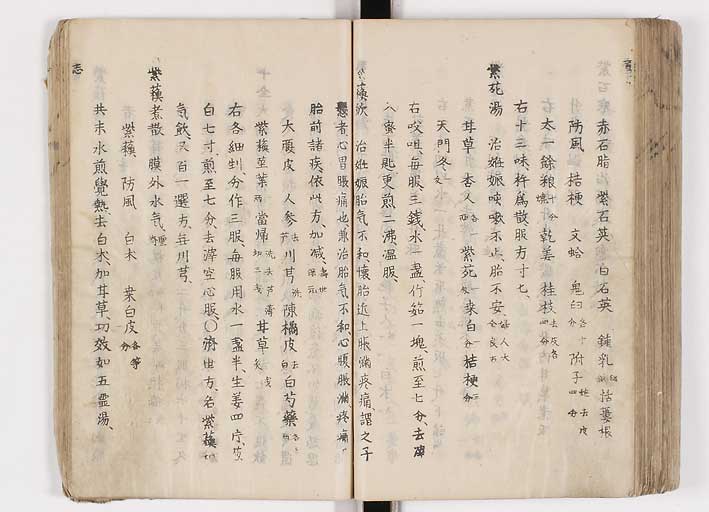 赤石脂 紫石英 白石英 鍾乳 栝蔞根
防風 桔梗 文蛤 鬼臼 附子
右太一餘粮 乾姜 桂枝
右十三味杵為散服方寸匕、
紫苑湯 治姙娠咳嗽不止、胎不安、
甘草 杏人 紫苑 桑白 桔梗
天門冬
右㕮咀、每服三錢、水一盞、竹筎一塊、煎至七分、去滓
入蜜半匙更煎二沸溫服、
蘓飲 治姙娠胎氣不和、懷胎近上脹滿疼痛、謂之子
懸者、心胃脹痛也兼治胎氣不和、心腹脹滿疼痛、
胎前諸疾依此方、加減、
大腹皮 人參 川芎 陳橘皮 白芍藥
紫蘓莖葉 當歸 甘草
右各細剉、分作三服、每服用水一盞半、生姜四片、
白七寸、煎至七分、去滓空心服、〇濟世方、名紫蘓
氣飲、又百一選方、無川芎、
紫蘓煮散 膜外水氣、
紫蘓 防風 白朮 桑白皮 各等分
共末水煎覺熱、去白朮、加甘草功效如五靈湯、
志